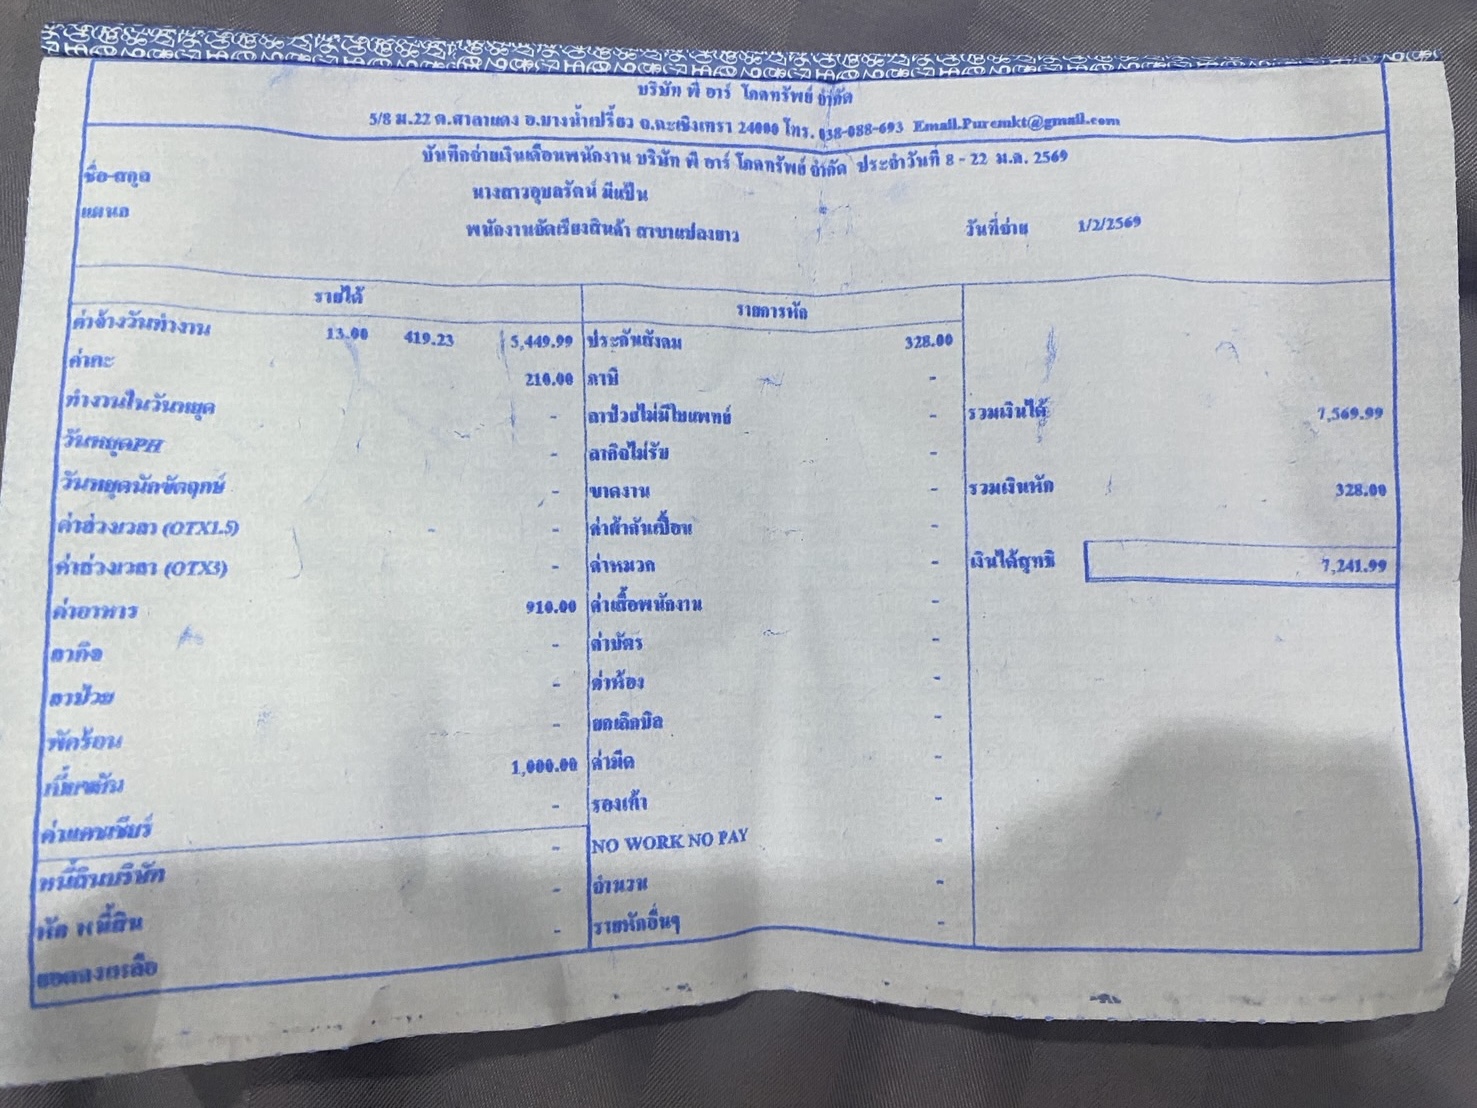 บริษัท พี อาร์ โภคทรัพย์ จำกัด
5/8 ม.22 ต.ศาลาแดง อ.บางน้ำเปรี้ยว จ.ฉะเชิงเทรา 24000 โทร. 038-088-693 Email.Puremkt@gmail.com
บันทึกจ่ายเงินเดือนพนักงาน บริษัท พี อาร์ โภคทรัพย์ จำกัด ประจำวันที่ 8 - 22 ม.ค. 2569
ชื่อ-สกุล นางสาวอุบลรัตน์ มีแป้น
แผนก พนักงานจัดเรียงสินค้า สาขาแปลงยาว วันที่จ่าย 1/2/2569
รายได้ รายการหัก
ค่าจ้างวันทำงาน 13.00 419.23 5,449.99 ประกันสังคม 328.00
ค่ากะ 210.00 ภาษี -
ทำงานในวันหยุด - ลาป่วยไม่มีใบแพทย์ - รวมเงินได้ 7,569.99
วันหยุดPH - ลากิจไม่รับ -
วันหยุดนักขัตฤกษ์ - ขาดงาน - รวมเงินหัก 328.00
ค่าล่วงเวลา (OTX1.5) - - ค่าผ้ากันเปื้อน -
ค่าล่วงเวลา (OTX3) - ค่าหมวก - เงินได้สุทธิ 7,241.99
ค่าอาหาร 910.00 ค่าเสื้อพนักงาน -
ลากิจ - ค่าบัตร -
ลาป่วย - ค่าห้อง -
พักร้อน - ยกเลิกบิล -
เบี้ยขยัน 1,000.00 ค่ามีด -
ค่าแคชเชียร์ - รองเท้า -
หนี้สินบริษัท - NO WORK NO PAY -
หัก หนี้สิน - จำนวน -
ยอดคงเหลือ - รายหักอื่นๆ -